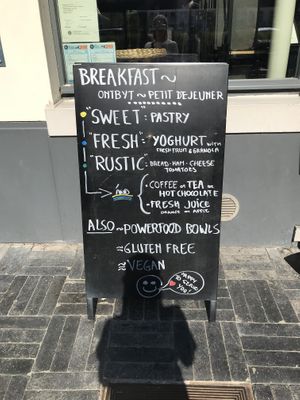 BREAKFAST~
ONTBYT ~ PETIT DEJEUNER
"SWEET": PASTRY
"FRESH": YOGHURT WITH
FRESH FRUIT & GRANOLA
"RUSTIC": BREAD-HAM-CHEESE
TOMATOES
AND
• COFFEE OR TEA OR
HOT CHOCOLATE
• FRESH JUICE
ORANGE OR APPLE
ALSO ~ POWERFOOD BOWLS
≈ GLUTEN FREE
≈ VEGAN
HAPPY
TO SERVE
YOU!